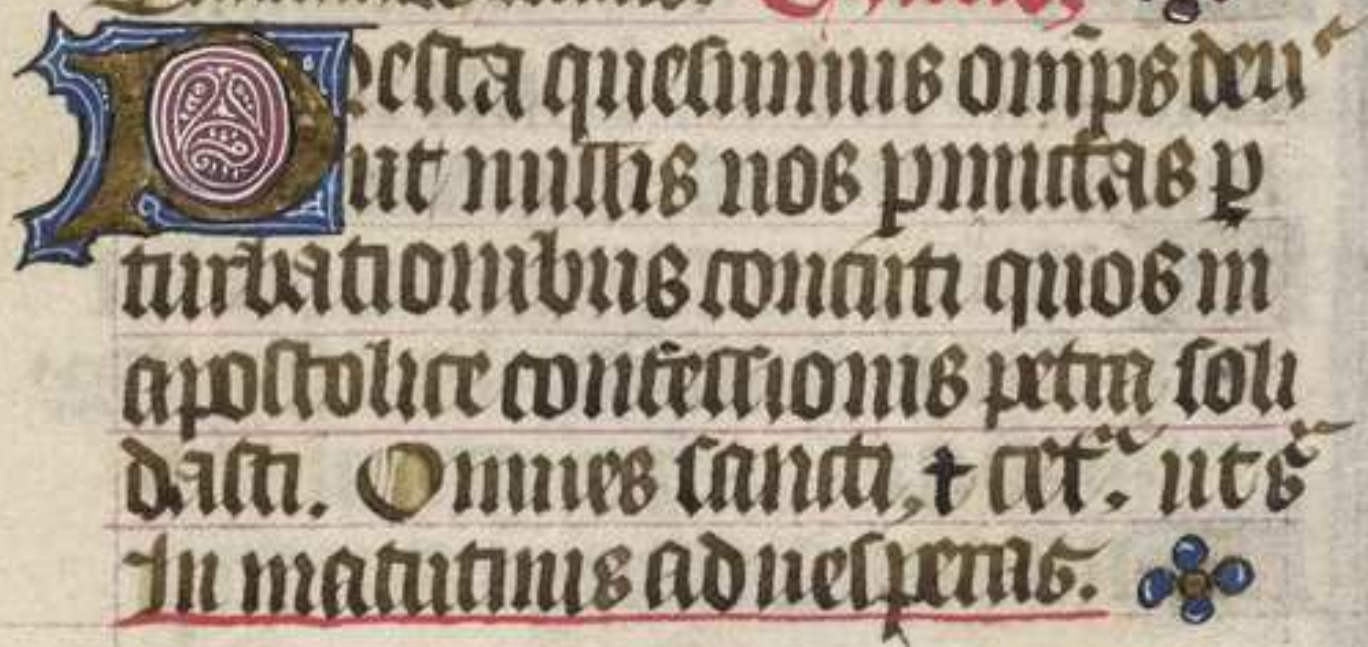 Presta quesumus omps deus
ut nullis nos pmittas p
turbationibus concuti quos in
apostolice confessionis petra soli
dasti. Omnes sancti, et cet. ut s
In matutinis ad uesperas.